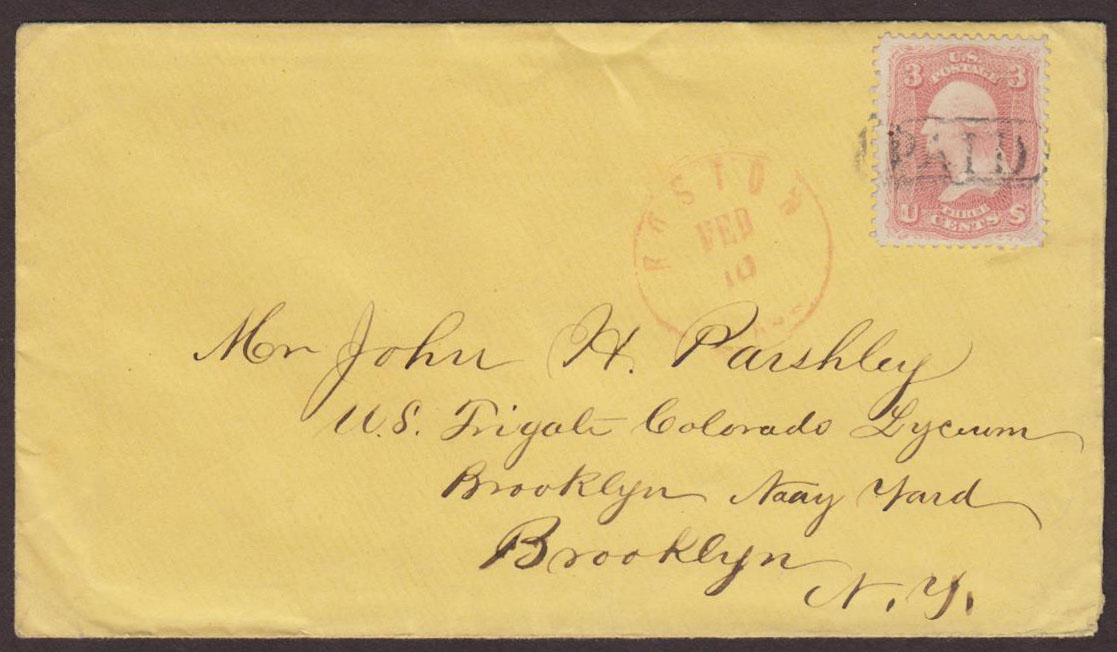 3 U.S. 3
POSTAGE
PAID
U THREE S
CENTS
BOSTON
FEB
10
MASS
Mr John H. Parshley
U.S. Frigate Colorado Lyceum
Brooklyn Navy Yard
Brooklyn
N.Y.